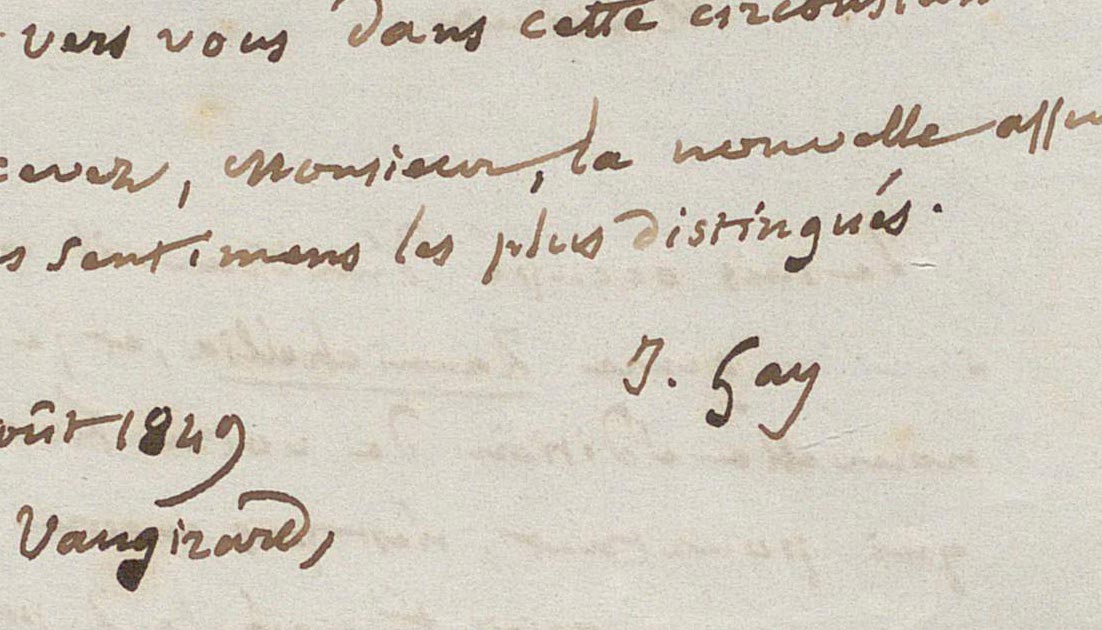 vers vous dans cette circonstan
cevez, Monsieur, la nouvelle assu
s sentimens les plus distingués.
J. Gay
oût 1849
Vaugirard,